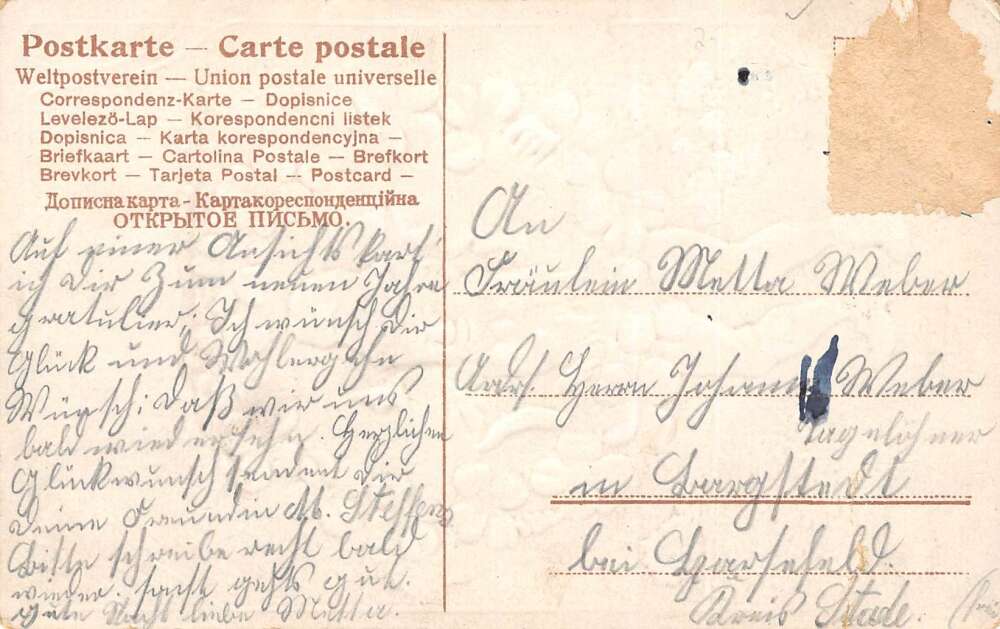 Postkarte — Carte postale
Weltpostverein — Union postale universelle
Correspondenz-Karte — Dopisnice
Levelező-Lap — Korespondencni listek
Dopisnica — Karta korespondencyjna —
Briefkaart — Cartolina Postale — Brefkort
Brevkort — Tarjeta Postal — Postcard —
Дописна карта - Картакореспонденційна
ОТКРЫТОЕ ПИСЬМО.
Auf einer Ansichtskart
ich Dir zum neuen Jahre
gratulier; Ich wünsch Dir
Glück und Wohlergehn
Wünsch; daß wir uns
bald wiedersehn. Herzlichen
Glückwunsch sendent Dir
Deine Freundin M. Steffens
Bitte schreibe recht bald
wieder. sonst gehts gut.
gute Nacht liebe Metta.
An
Fräulein Metta Weber
Adrs. Herrn Johann Weber
Tagelöhner
in Bargstedt
bei Harsefeld.
Kreis Stade.